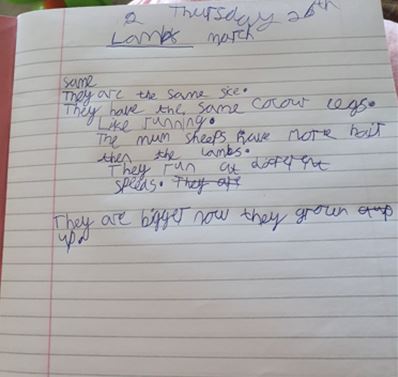 Thursday 26th
Lambs march
same
They are the same sice.
They have the same colour legs.
Like running.
The mum sheeps have more hair
then the lambs.
They run at different
speeds. They are
They are bigger now they grown
up.